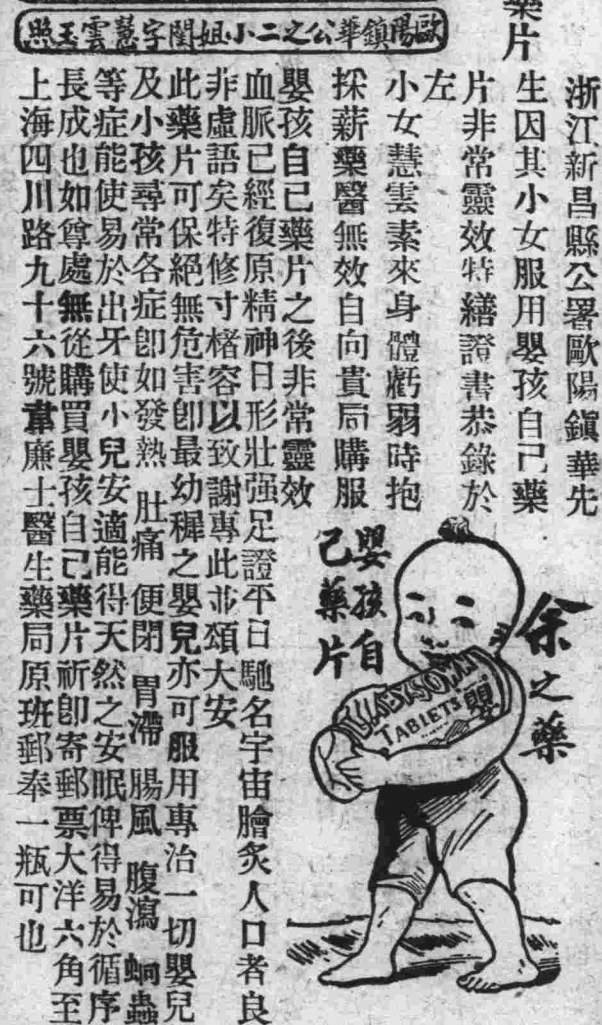 歐陽鎮華公之二小姐閨字慧雲玉照
藥片
浙江新昌縣公署歐陽鎮華先
生因其小女服用嬰孩自己藥
片非常靈效特繕證書恭錄於
左
小女慧雲素來身體虧弱時抱
採薪藥醫無效自向貴局購服
嬰孩自己藥片之後非常靈效
血脈已經復原精神日形壯强足證平日馳名宇宙膾炙人口者良
非虛語矣特修寸楮容以致謝專此並頌大安
此藥片可保絕無危害卽最幼穉之嬰兒亦可服用專治一切嬰兒
及小孩尋常各症卽如發熱 肚痛 便閉 胃滯 腸風 腹瀉 蛔蟲
等症能使易於出牙使小兒安適能得天然之安眠俾得易於循序
長成也如尊處無從購買嬰孩自己藥片祈卽寄郵票大洋六角至
上海四川路九十六號韋廉士醫生藥局原班郵奉一瓶可也
余之藥
嬰孩自
己藥片
TABLETS
嬰